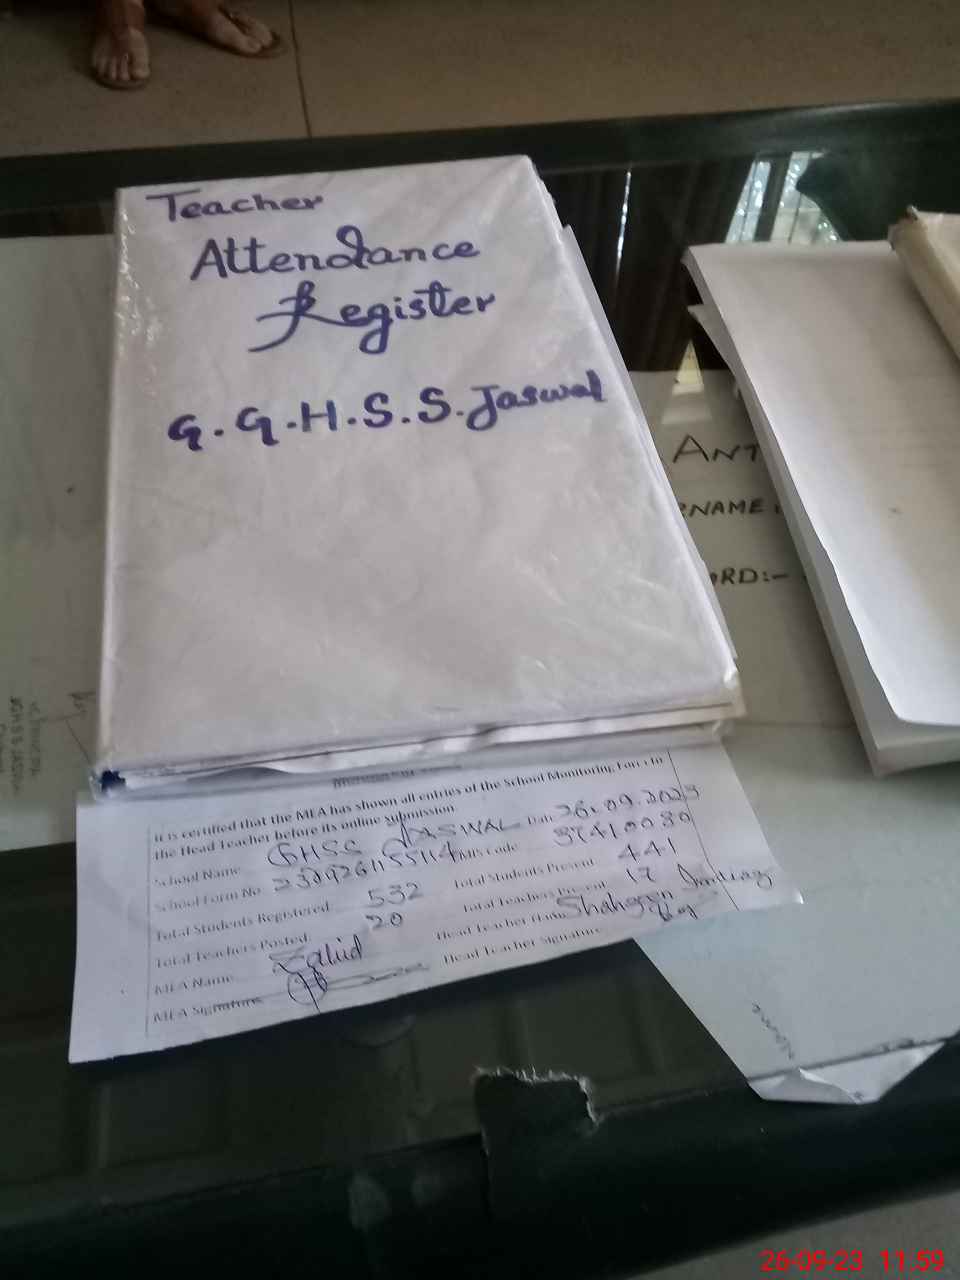 Teacher
Attendance
Register
G.G.H.S.S. Jaswal
ANT
RNAME:
ORD:-
It is certified that the MEA has shown all entries of the School Monitoring Form to
the Head Teacher before its online submission.
School Name GHSS JASWAL Date 26.09.2023
School Form No. 2309261155114 EMIS Code 37410030
Total Students Registered: 532 Total Students Present 441
Total Teachers Posted: 20 Total Teachers Present 17
MEA Name Zahid Head Teacher Name Shaheen
MEA Signature Head Teacher Signature
26-09-23 11.59